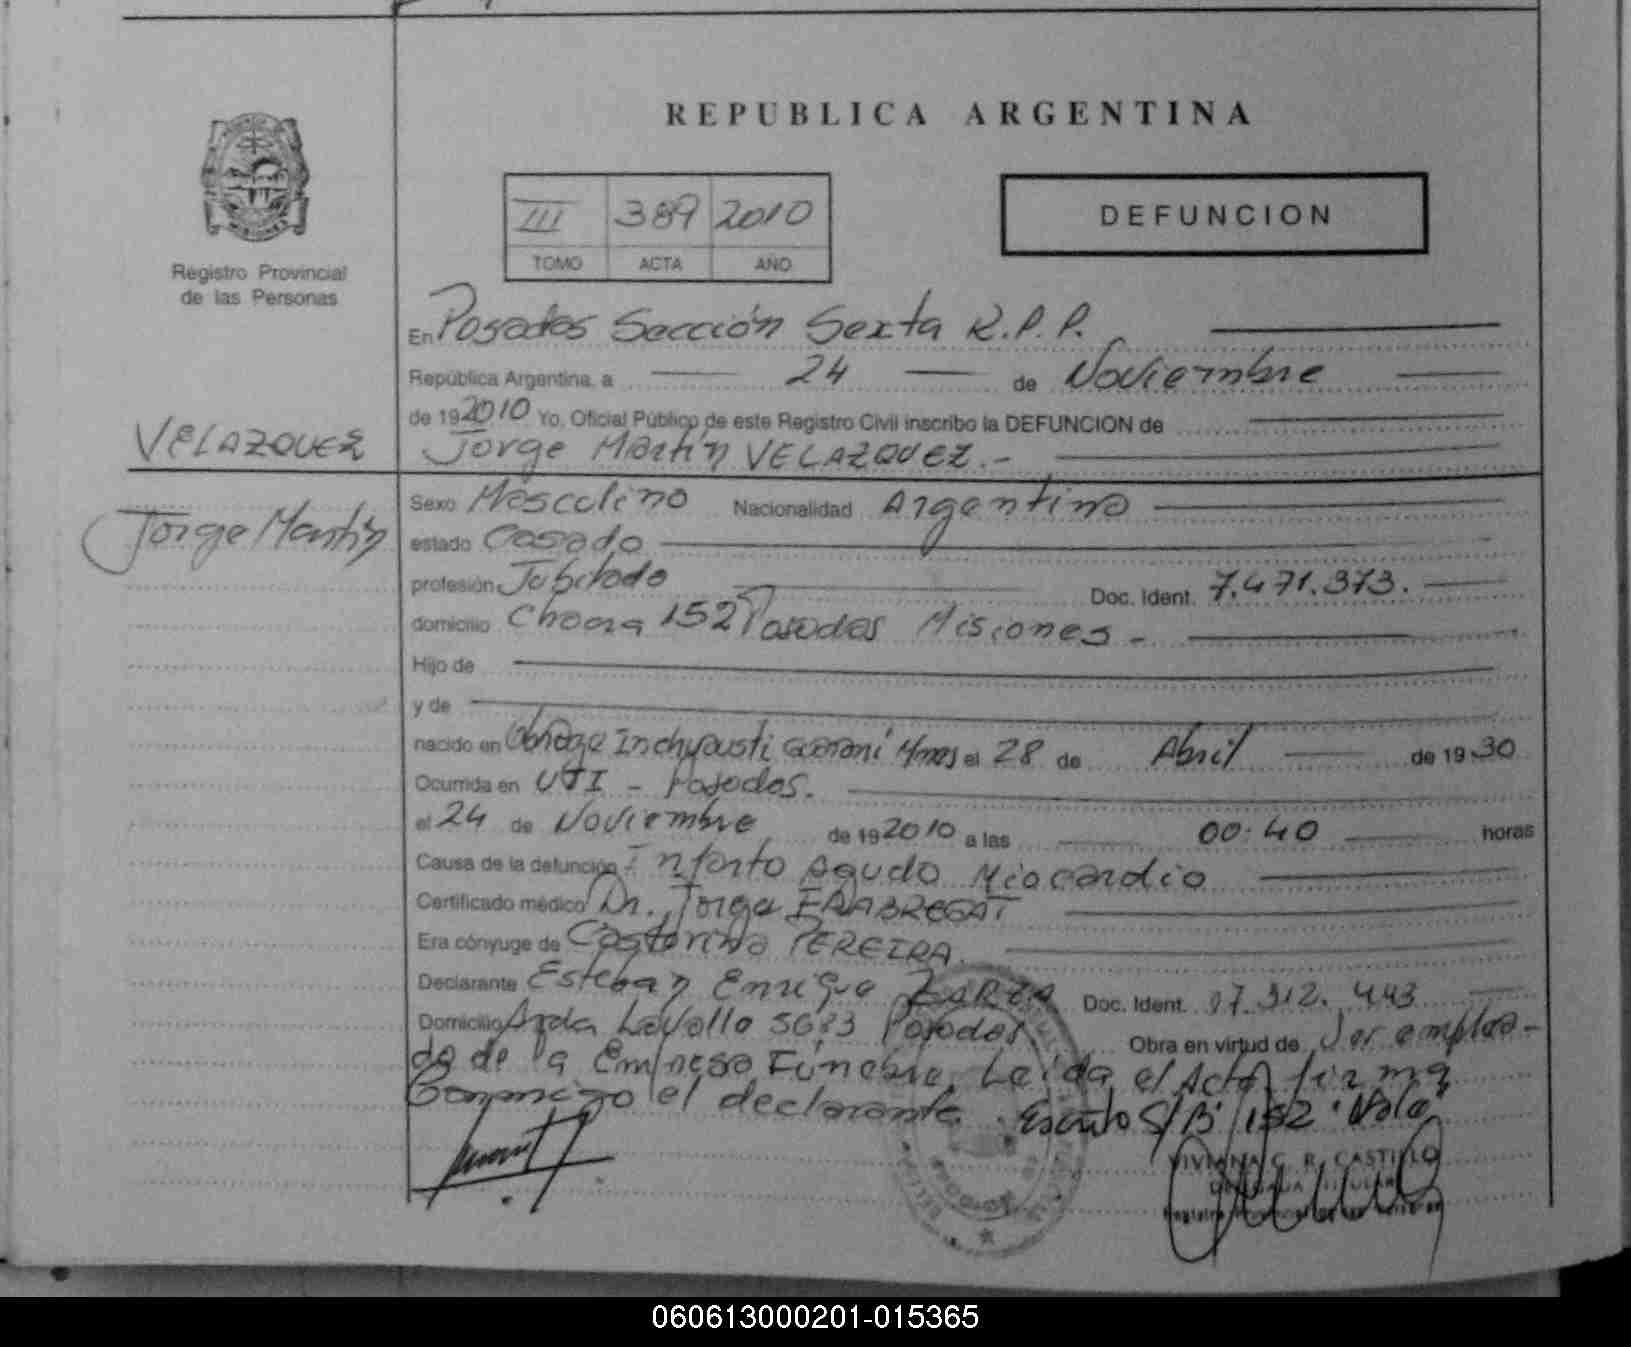 REPUBLICA ARGENTINA
III 389 2010
TOMO ACTA AÑO
DEFUNCION
Registro Provincial
de las Personas
En Posadas Sección Sexta R.P.P.
República Argentina, a 24 de Noviembre
de 192010 Yo, Oficial Público de este Registro Civil inscribo la DEFUNCION de
VELAZQUEZ
Jorge Martín VELAZQUEZ.-
Jorge Martín
Sexo Masculino Nacionalidad Argentina
estado Casado
profesión Jubilado Doc. Ident. 7.471.373.
domicilio Chacra 152 Posadas Misiones -
Hijo de
y de
nacido en Guaraní Mnes el 28 de Abril de 1930
Ocurrida en UTI - Posadas.
el 24 de Noviembre de 192010 a las 00:40 horas
Causa de la defunción Infarto Agudo Miocardio
Certificado médico Dr. Jorge
Era cónyuge de Castorina PEREIRA.
Declarante Esteban Enrique ZARZA Doc. Ident. 17.312.443
Domicilio Avda Lavalle Posadas Obra en virtud de Ser emplea-
do de la Empresa Fúnebre. Leída el Acta firma
Conmigo el declarante. Escrito S/B 152 Vale
VIVIANA C. R. CASTILLO
DELEGADA TITULAR
Registro Provincial de las Personas
060613000201-015365